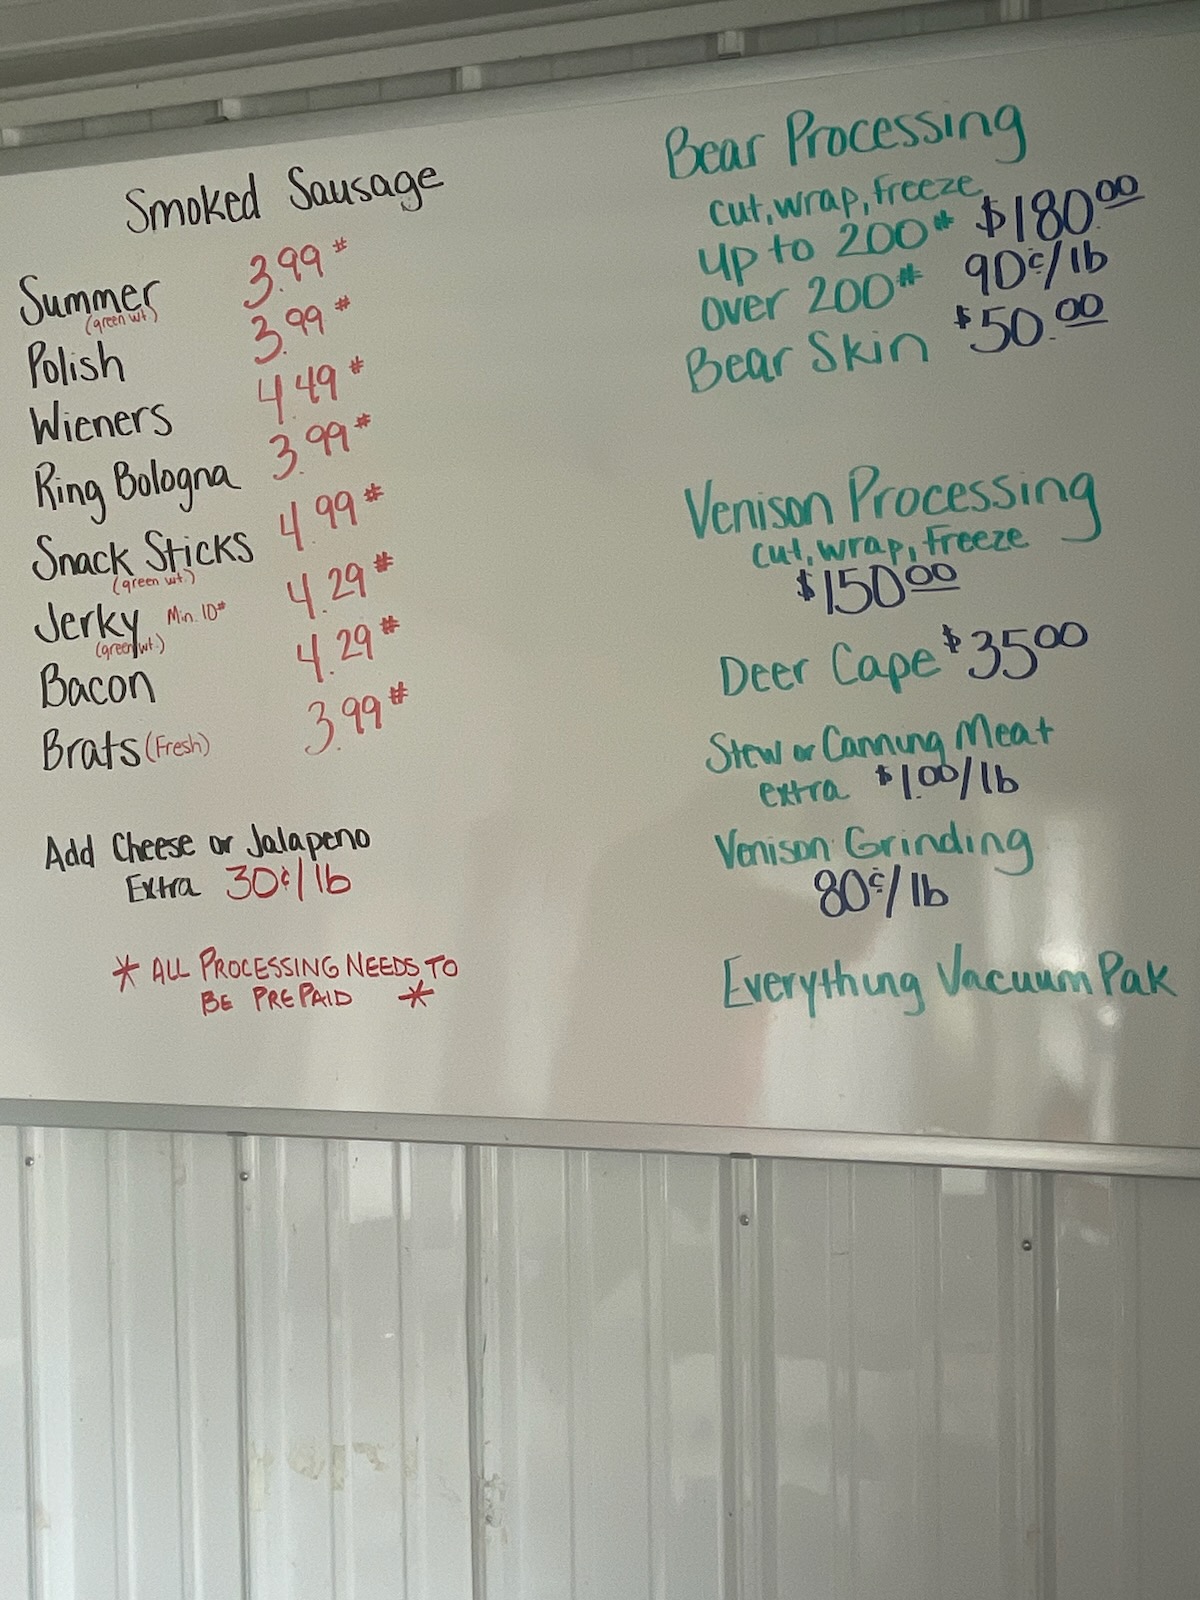 Smoked Sausage
Summer 3.99#
(green wt.)
Polish 3.99#
Wieners 4.49#
Ring Bologna 3.99#
Snack Sticks 4.99#
(green wt.)
Jerky Min. 10# 4.29#
(green wt.)
Bacon 4.29#
Brats (Fresh) 3.99#
Add Cheese or Jalapeno
Extra 30¢/lb
* ALL PROCESSING NEEDS TO
BE PREPAID *
Bear Processing
cut, wrap, freeze
up to 200# $180.00
over 200# 90¢/lb
Bear Skin $50.00
Venison Processing
cut, wrap, freeze
$150.00
Deer Cape $35.00
Stew or Canning Meat
extra $1.00/lb
Venison Grinding
80¢/lb
Everything Vacuum Pak